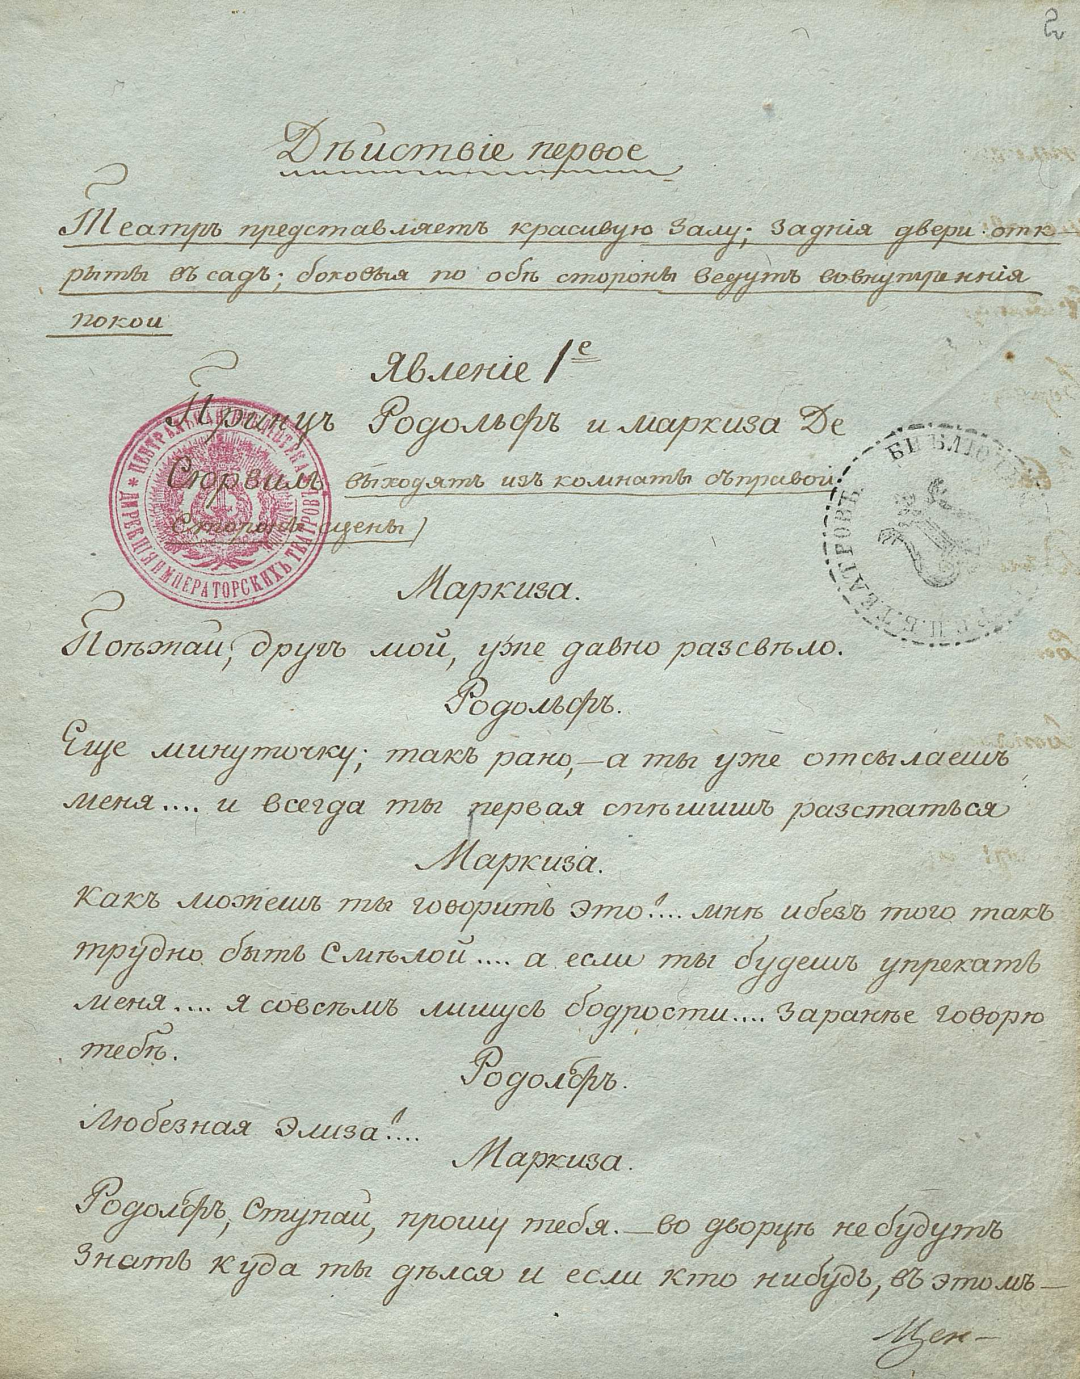 2
Дѣйствіе первое
Театръ представляетъ красивую залу; заднія двери отк
рыты въ садъ; боковыя по обѣ стороны ведутъ вовнутреннія
покои
Явленіе 1е
Принцъ Родольфъ и маркиза Де
Сюрвиль выходятъ изъ комнаты съправой
Стороны сцены)
ЦЕНТРАЛЬНАЯ БИБЛІОТЕКА
ДИРЕКЦІЯ ИМПЕРАТОРСКИХЪ ТЕАТРОВЪ
БИБЛІОТЕ
ТЕАТРОВЪ
Маркиза.
Поѣзжай, другъ мой, уже давно разсвѣло.
Родольфъ.
Еще минуточку; такъ рано,—а ты уже отсылаешь
меня.... и всегда ты первая спѣшишь разстаться
Маркиза.
Какъ можешь ты говорить это!.... мнѣ ибезъ того такъ
трудно быть Смѣлой.... а если ты будешь упрекать
меня.... я совсѣмъ лишусь бодрости.... Заранѣе говорю
тебѣ.
Родольфъ.
Любезная Элиза!....
Маркиза.
Родольфъ, Ступай, прошу тебя.—во дворцѣ небудутъ
Знать куда ты дѣлся и если кто нибудь, въ этомъ—
Цен—